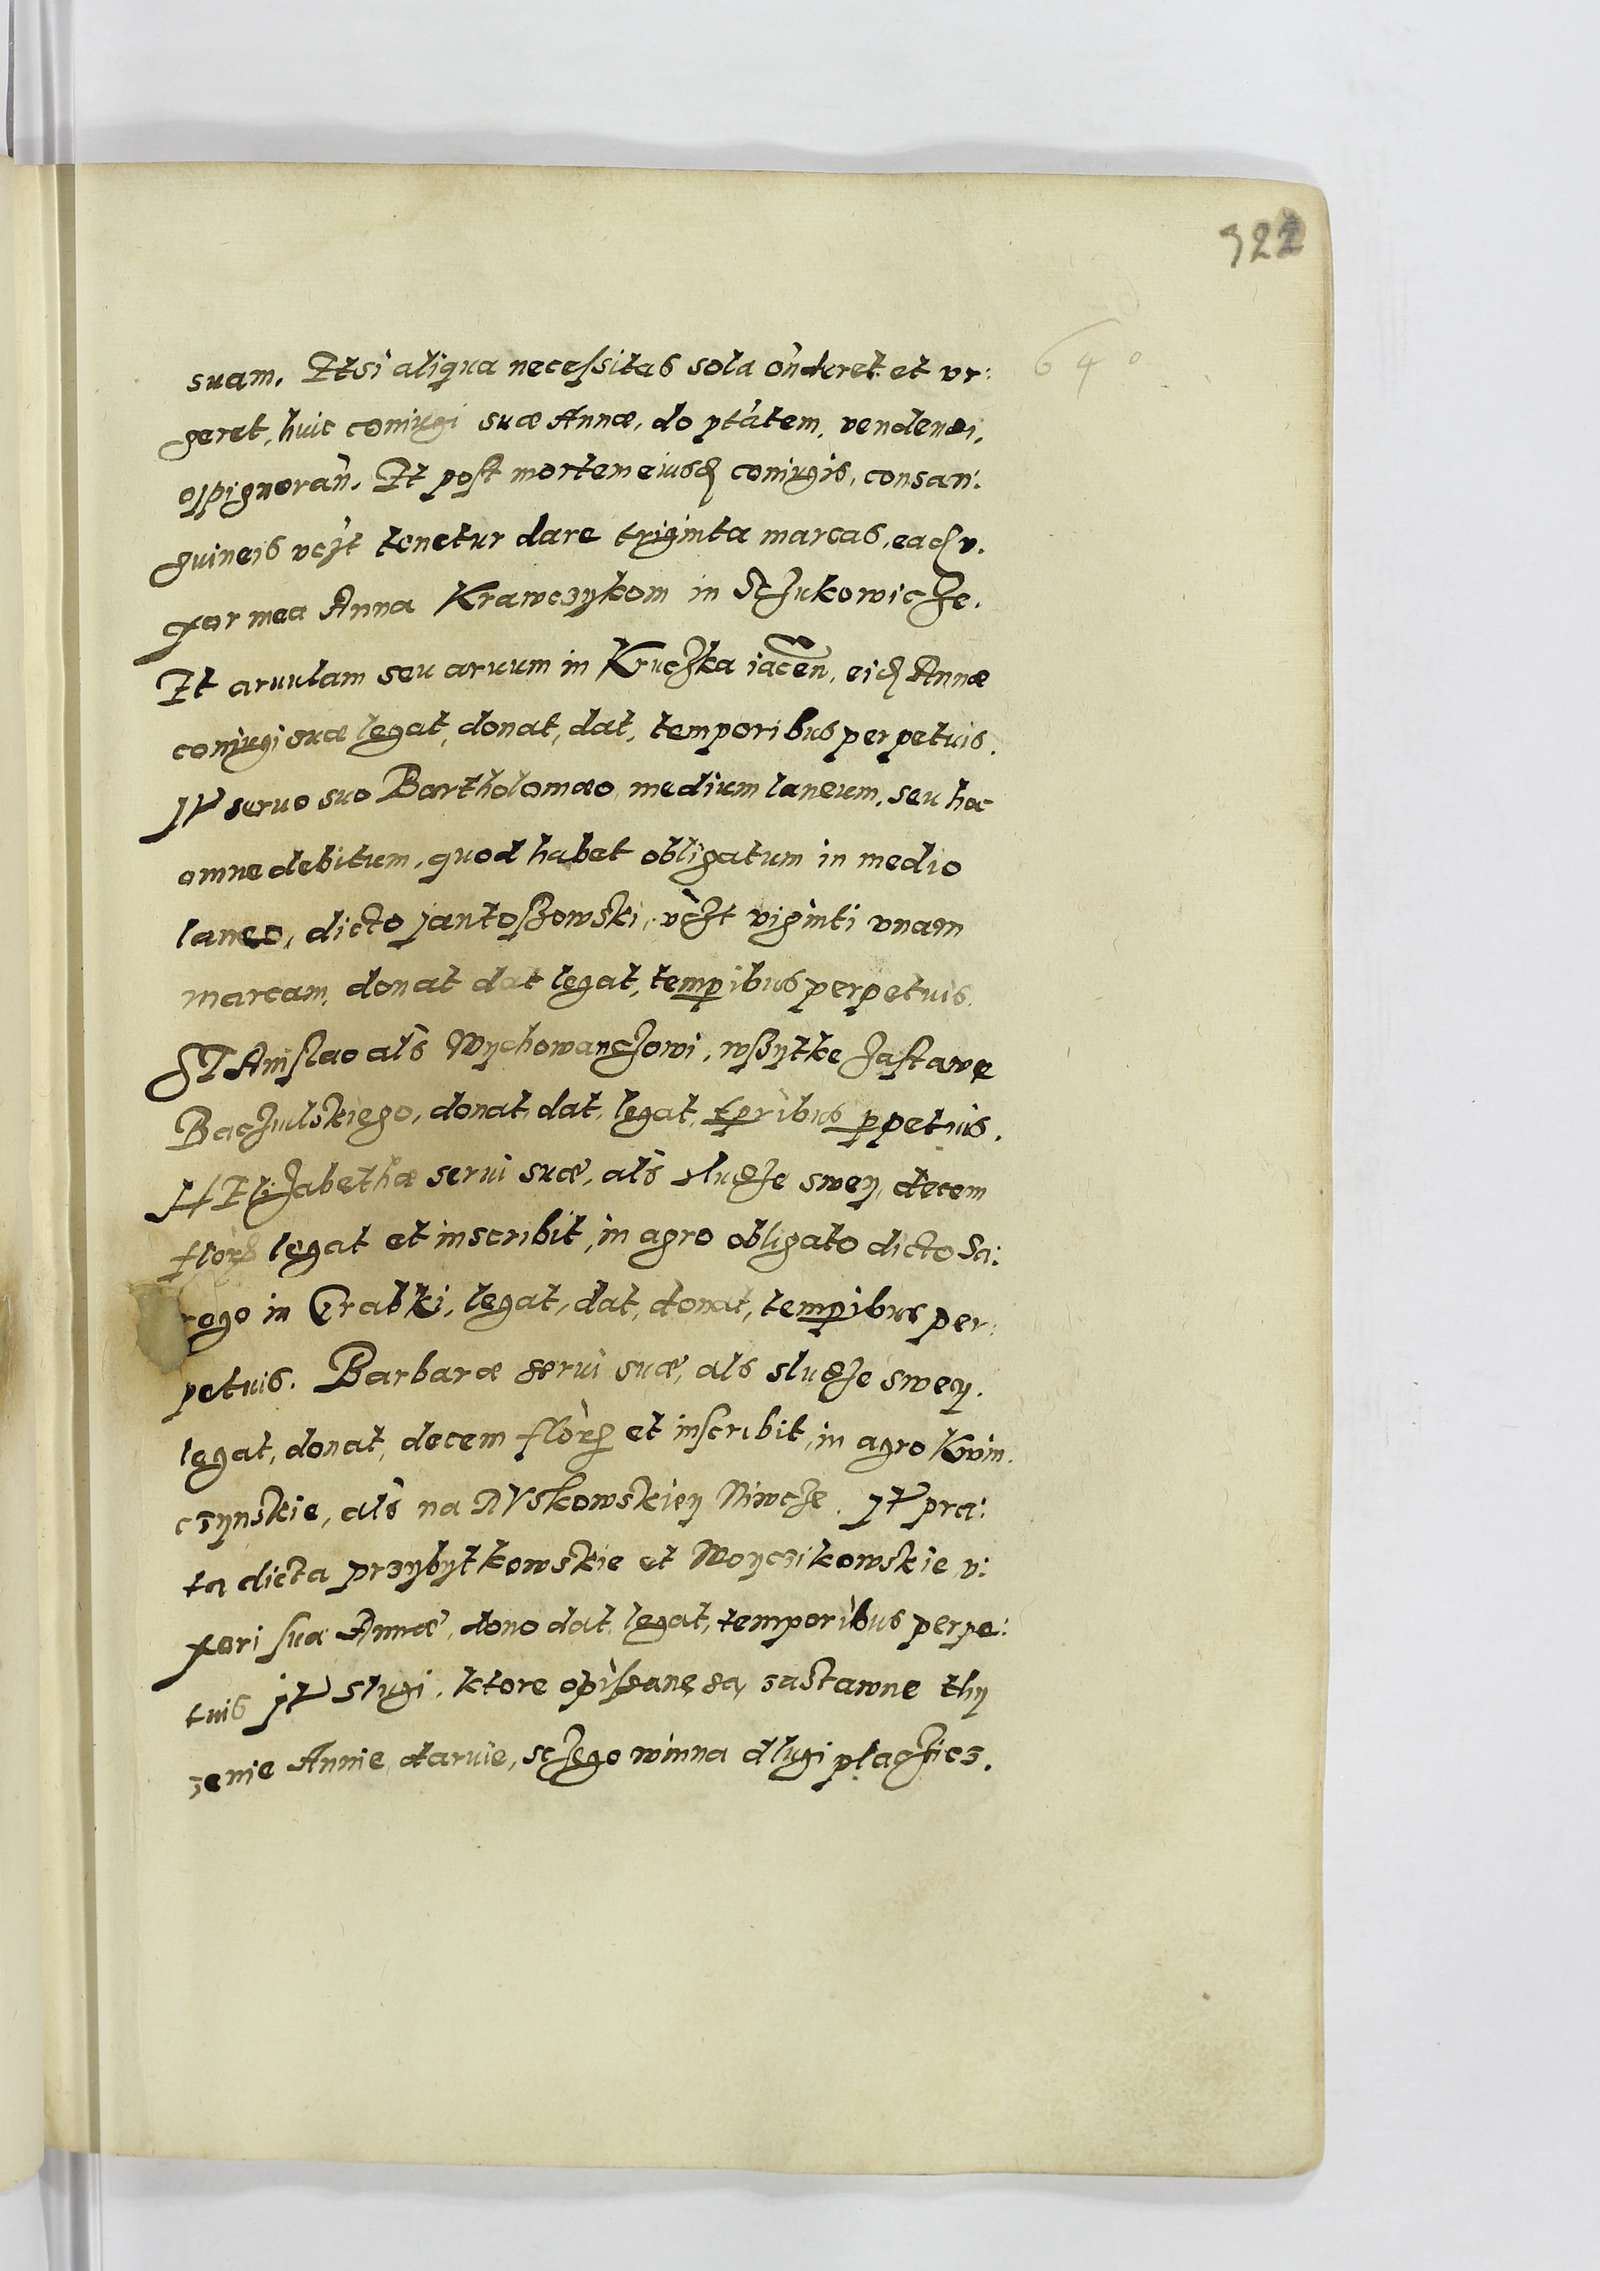 322
640
suam. Et si aliqua necessitas sola onderet et vr:
geret, huic coniugi suæ Annæ, do ptatem, vendendi,
oppignoran. Et post mortem eiusd coniugis, consan:
guineis vczt tenetur dare triginta marcas, ead v.
xor mea Anna Krawczykom in Stzukowicze.
Et aruulam seu aruum in Kruczka iacen, eid Annæ
coniugi suæ legat, donat, dat, temporibus perpetuis.
It seruo suo Bartholomæo, medium laneum, seu hoc
omne debitum, quod habet obligatum in medio
laneo, dicto Jantoszowski, vczt viginti vnam
marcam, donat dat legat, tempibus perpetuis.
STAnislao als Wychowanczowi, wszytke zastawe
Baczulskiego, donat, dat, legat, tpribus ppetuis.
It Elizabethæ serui suæ, als sludze swey, decem
flor legat et inscribit, in agro obligato dicto Sa:
rego in Grabki, legat, dat, donat, tempibus per:
petuis. Barbaræ serui suæ, als sludze swey.
legat, donat, decem flor et inscribit, in agro Kwin.
czynskie, als na RVskowskiey Niwcze. It pra:
ta dicta przybytkowskie et Woyczikowskie v:
xori suæ Annæ, dono dat legat, temporibus perpe:
tuis It slugi, ktore opissane sa, zastawne thy
zenie Annie, daruie, sczego winna dlugi placzicz.